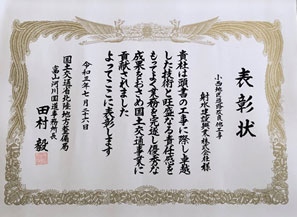 表彰状
小西地区道路改良他工事
射水建設興業株式会社様
貴社は頭書の工事に際し卓越
した技術と旺盛なる責任感を
もってよく業務を完遂し優秀な
成果をおさめ国土交通事業に
貢献されました
よってここに表彰します
令和三年七月二十六日
国土交通省北陸地方整備局
富山河川国道事務所長
田村 毅